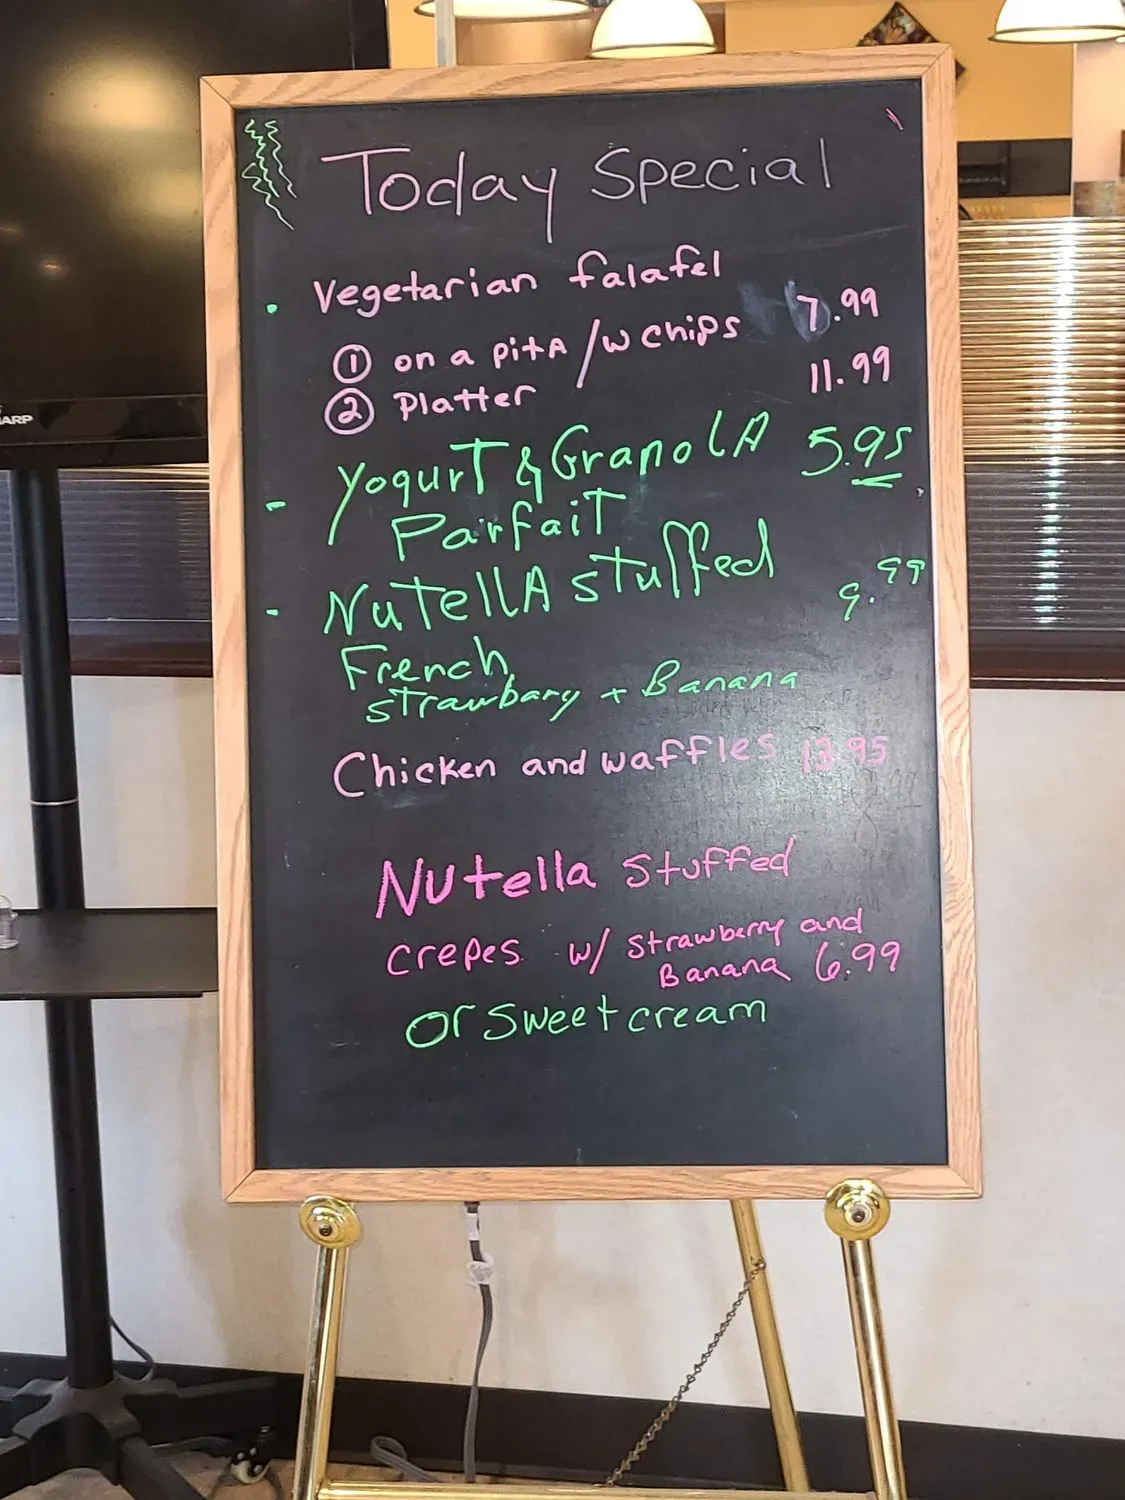 ARP
Today Special
· Vegetarian falafel
① on a pitA /w chips 7.99
② Platter 11.99
- YogurT & GranolA 5.95
ParfaiT
- NuTellA sTuffed 9.99
French
sTrawbary + Banana
Chicken and waffles 13.95
Nutella Stuffed
crepes w/ strawberry and
Banana 6.99
or sweet cream